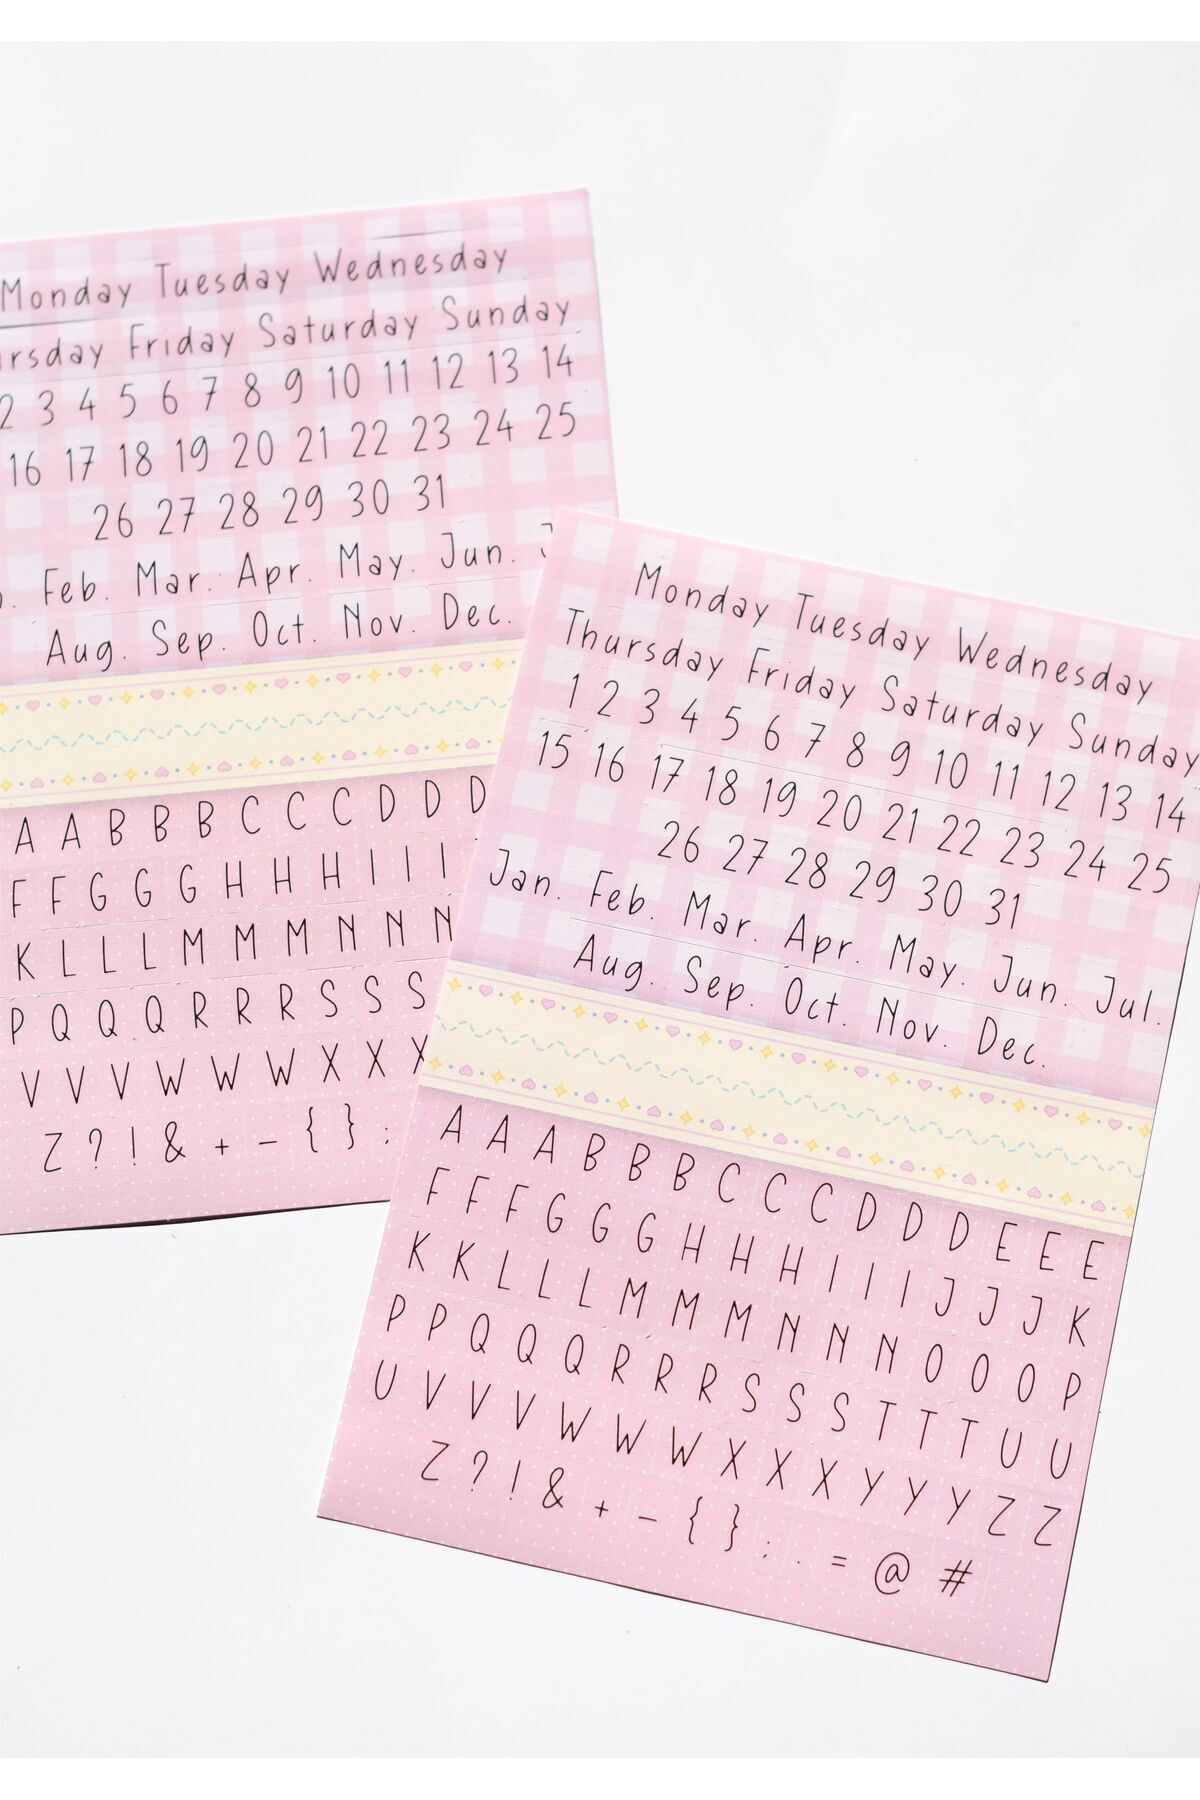 Monday Tuesday Wednesday
Friday Saturday Sunday
2 3 4 5 6 7 8 9 10 11 12 13 14
16 17 18 19 20 21 22 23 24 25
26 27 28 29 30 31
Feb. Mar. Apr. May. Jun.
Aug. Sep. Oct. Nov. Dec.
A A B B B C C C D D D
F F G G G H H H I I I
K L L L M M M N N N
P Q Q Q R R R S S S
V V V W W W X X X
Z ? ! & + - { } :
Monday Tuesday Wednesday
Thursday Friday Saturday Sunday
1 2 3 4 5 6 7 8 9 10 11 12 13 14
15 16 17 18 19 20 21 22 23 24 25
26 27 28 29 30 31
Jan. Feb. Mar. Apr. May. Jun. Jul.
Aug. Sep. Oct. Nov. Dec.
A A A B B B C C C D D D E E E
F F F G G G H H H I I I J J J K
K K L L L M M M N N N O O O P
P P Q Q Q R R R S S S T T T U U
U V V V W W W X X X Y Y Y Z Z
Z ? ! & + - { } : . = @ #